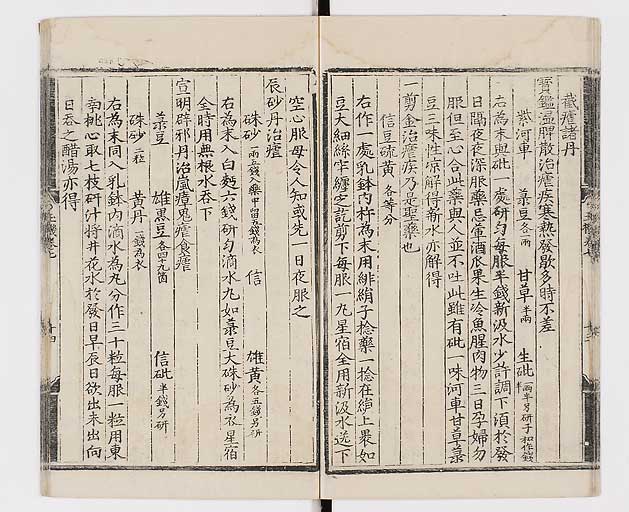 截瘧諸丹
寶鑑溫脾散治瘧疾寒熱發歇多時不差
紫河車 菉豆各一兩 甘草半兩 生砒
右為末與砒一處研勻每服半錢新汲水少許調下須於發
日隔夜夜深服藥忌軍酒瓜果生冷魚腥肉物三日孕婦勿
服但至心合此藥與人並不吐此雖有砒一味河車甘草菉
豆三味性凉解得新水亦解得
一剪金治瘧疾乃至聖藥也
信豆硫黃各等分
右作一處乳鉢內杵為末用緋絹子捻藥一捻在絹上裹如
豆大細絲牢纏之訖剪下每服一丸星宿全用新汲水送下
空心服母令人知或先一日夜服之
辰砂丹治瘧
硃砂一兩五錢入藥中留五錢為衣 信 雄黃各五錢另研
右為末入白麪六錢研勻滴水丸如菉豆大硃砂為衣星宿
全時用無根水吞下
宣明辟邪丹治嵐瘴鬼瘧食瘧
菉豆 雄黑豆各四十九箇 信砒半錢另研
硃砂二粒 黃丹一錢為衣
右為末同入乳鉢內滴水為丸分作三十粒每服一粒用東
南桃心取七枝研汁將井花水於發日早辰日欲出未出向
日吞之醋湯亦得